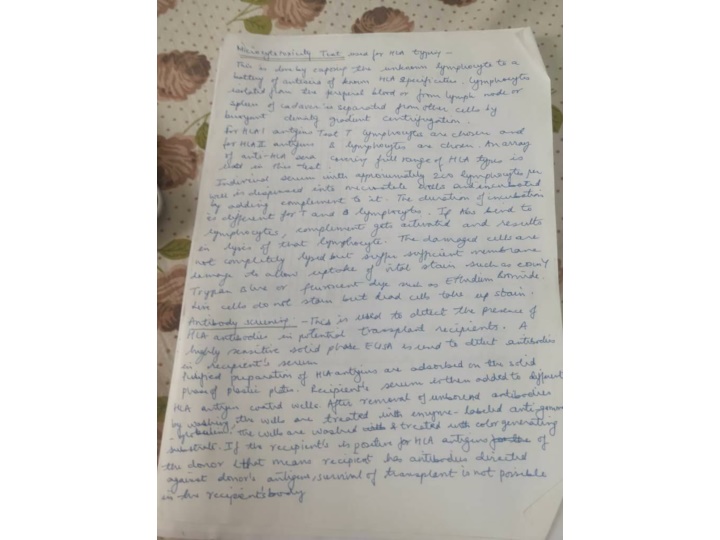 Microcytotoxicity Test used for HLA typing -
This is done by exposing the unknown lymphocyte to a
battery of antisera of known HLA specificities. Lymphocytes
isolated from the peripheral blood or from lymph node or
spleen of cadaver is separated from other cells by
buoyant density gradient centrifugation.
for HLA I antigens Test T lymphocytes are chosen and
for HLA II antigens B lymphocytes are chosen. An array
of anti-HLA sera covering full range of HLA types is
used in this test.
Individual serum with approximately 2000 lymphocytes per
well is dispensed into microtable wells and incubated
by adding complement to it. The duration of incubation
is different for T and B lymphocytes. If Abs bind to
lymphocytes, complement gets activated and results
in lysis of that lymphocyte. The damaged cells are
not completely lysed but suffer sufficient membrane
damage to allow uptake of vital stain such as eosin Y
Trypan Blue or fluorescent dye such as Ethidium bromide.
Live cells do not stain but dead cells take up stain.
Antibody screening - This is used to detect the presence of
HLA antibodies in potential transplant recipients. A
highly sensitive solid phase ELISA is used to detect antibodies
in recipient's serum
Purified preparation of HLA antigens are adsorbed on the solid
phase of plastic plates. Recipient's serum is then added to different
HLA antigen coated wells. After removal of unbound antibodies
by washing, the wells are treated with enzyme-labeled anti-gamma
globulin. The wells are washed & treated with color generating
substrate. If the recipient's is positive for HLA antigens of
the donor that means recipient has antibodies directed
against donor's antigens, survival of transplant is not possible
in the recipient's body